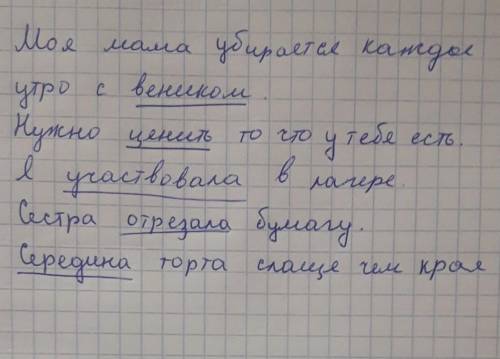 Моя мама убирается каждое
утро с веником.
Нужно ценить то что у тебя есть.
Я участвовала в лагере.
Сестра отрезала бумагу.
Середина торта слаще чем края